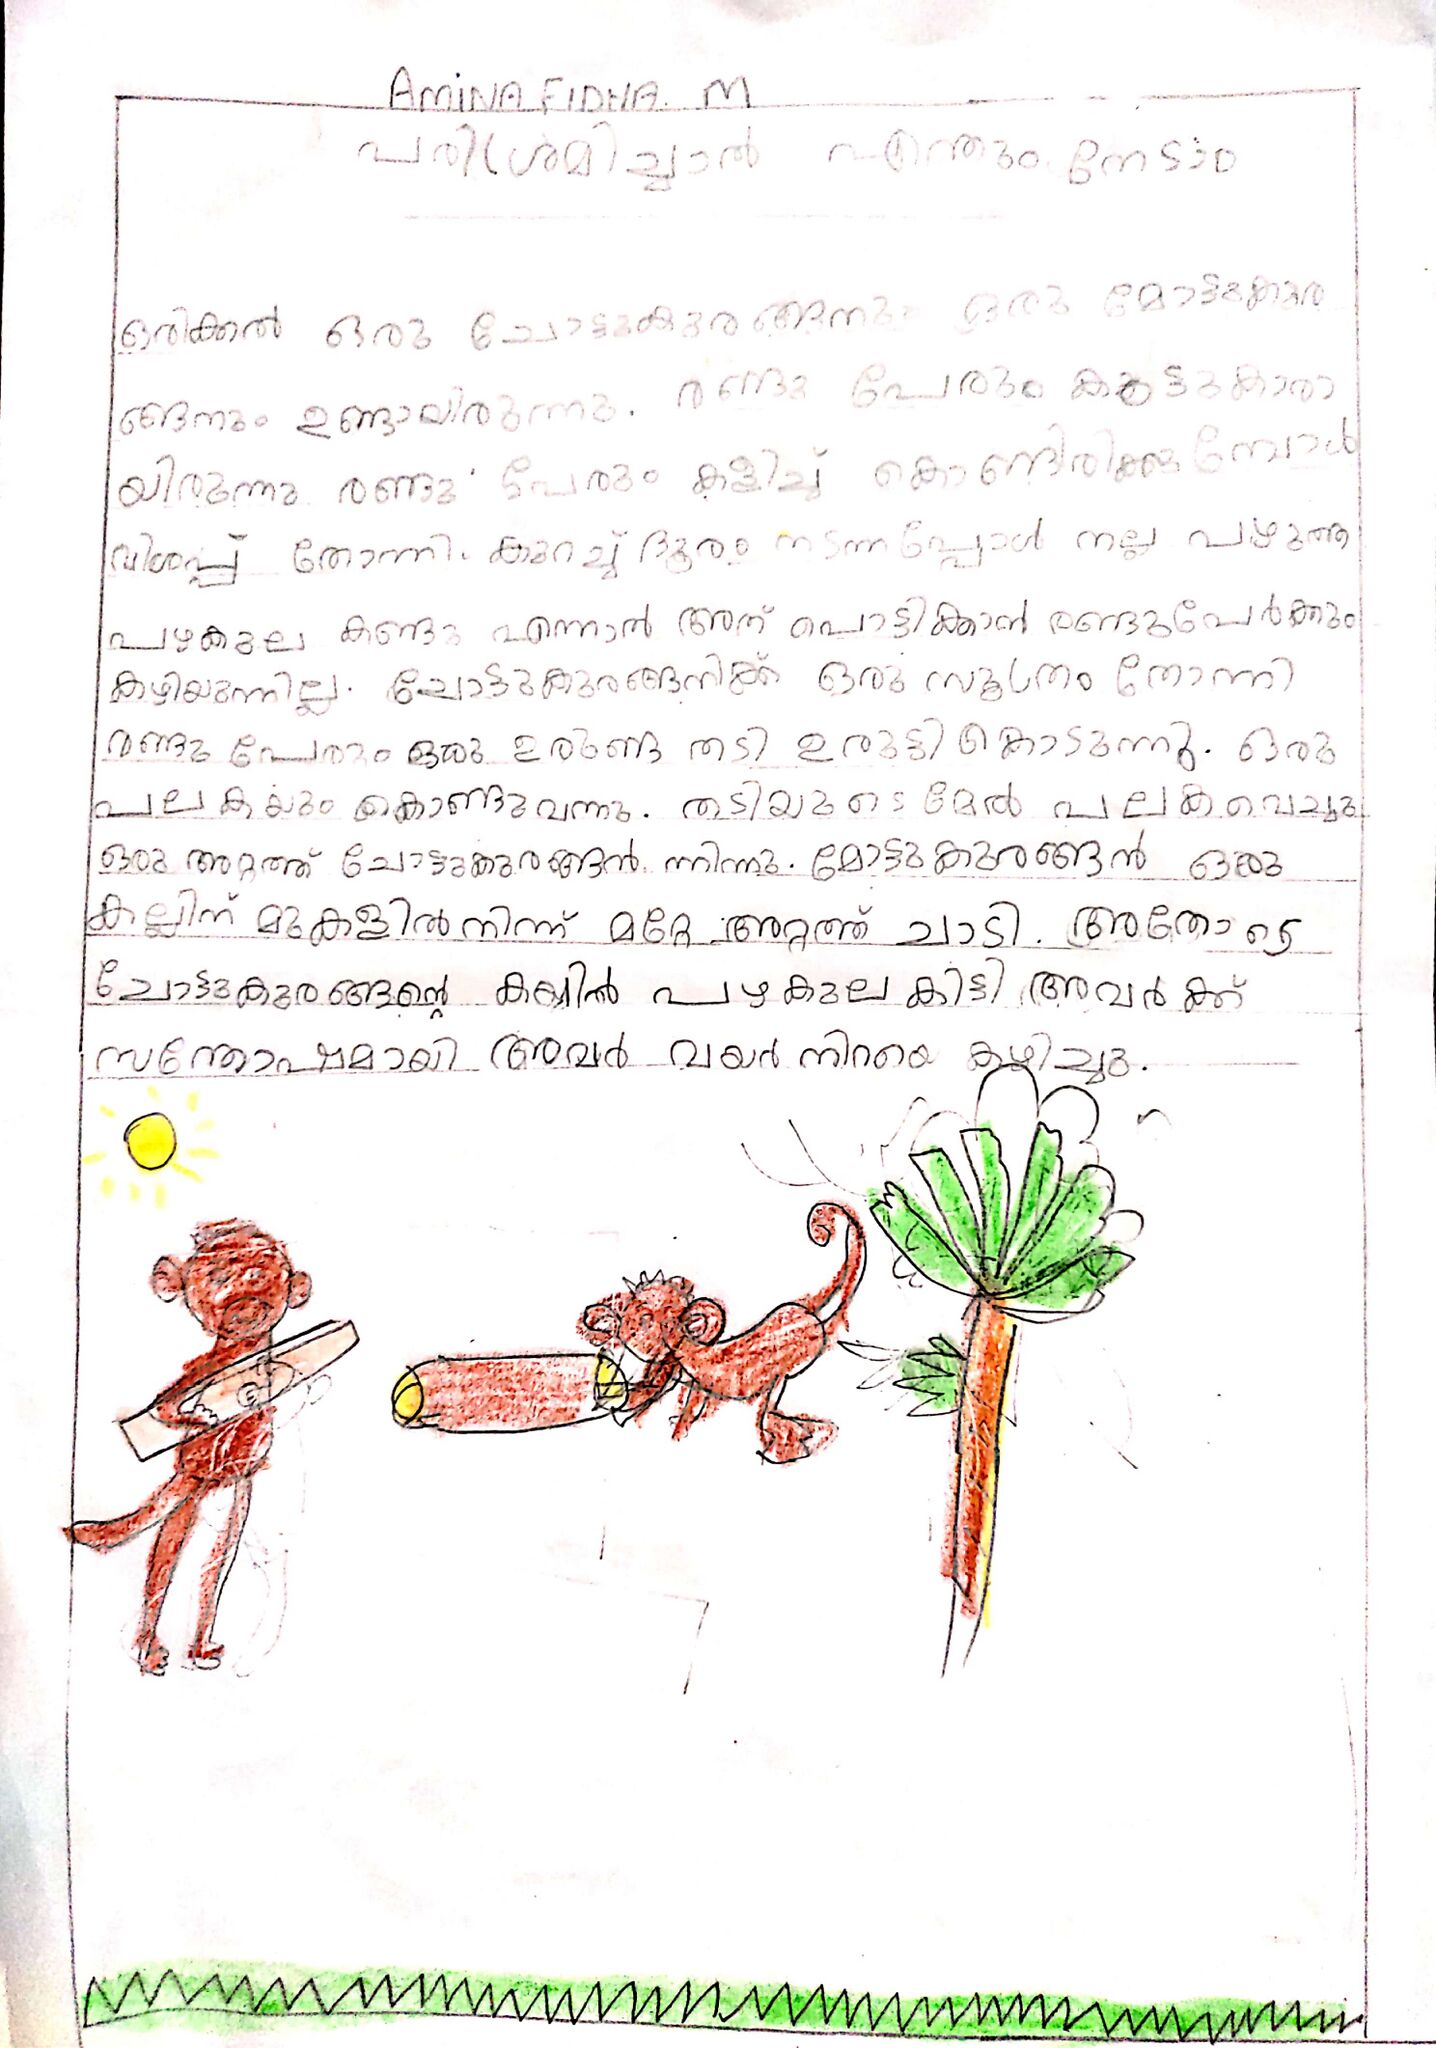 AMINA FIDHA. M
പരിശ്രമിച്ചാൽ എന്തും നേടാം
ഒരിക്കൽ ഒരു ചോട്ടുകുരങ്ങനും ഒരു മോട്ടുകുര
ങ്ങനും ഉണ്ടായിരുന്നു. രണ്ടു പേരും കൂട്ടുകാരാ
യിരുന്നു രണ്ടു പേരും കളിച്ച് കൊണ്ടിരിക്കുമ്പോൾ
വിശപ്പ് തോന്നി. കുറച്ച് ദൂരം നടന്നപ്പോൾ നല്ല പഴുത്ത
പഴകുല കണ്ടു എന്നാൽ അത് പൊട്ടിക്കാൻ രണ്ടുപേർക്കും
കഴിയുന്നില്ല. ചോട്ടുകുരങ്ങനിക്ക് ഒരു സൂത്രം തോന്നി
രണ്ടു പേരും ഒരു ഉരുണ്ട തടി ഉരുട്ടി കൊടുന്നു. ഒരു
പലകയും കൊണ്ടുവന്നു. തടിയുടെ മേൽ പലക വെച്ചു
ഒരു അറ്റത്ത് ചോട്ടുകുരങ്ങൻ ന്നിന്നു. മോട്ടുകുരങ്ങൻ ഒരു
കല്ലിന് മുകളിൽ നിന്ന് മറ്റേ അറ്റത്ത് ചാടി. അതോടെ
ചോട്ടുകുരങ്ങന്റെ കയ്യിൽ പഴകുല കിട്ടി അവർക്ക്
സന്തോഷമായി അവർ വയർ നിറയെ കഴിച്ചു.